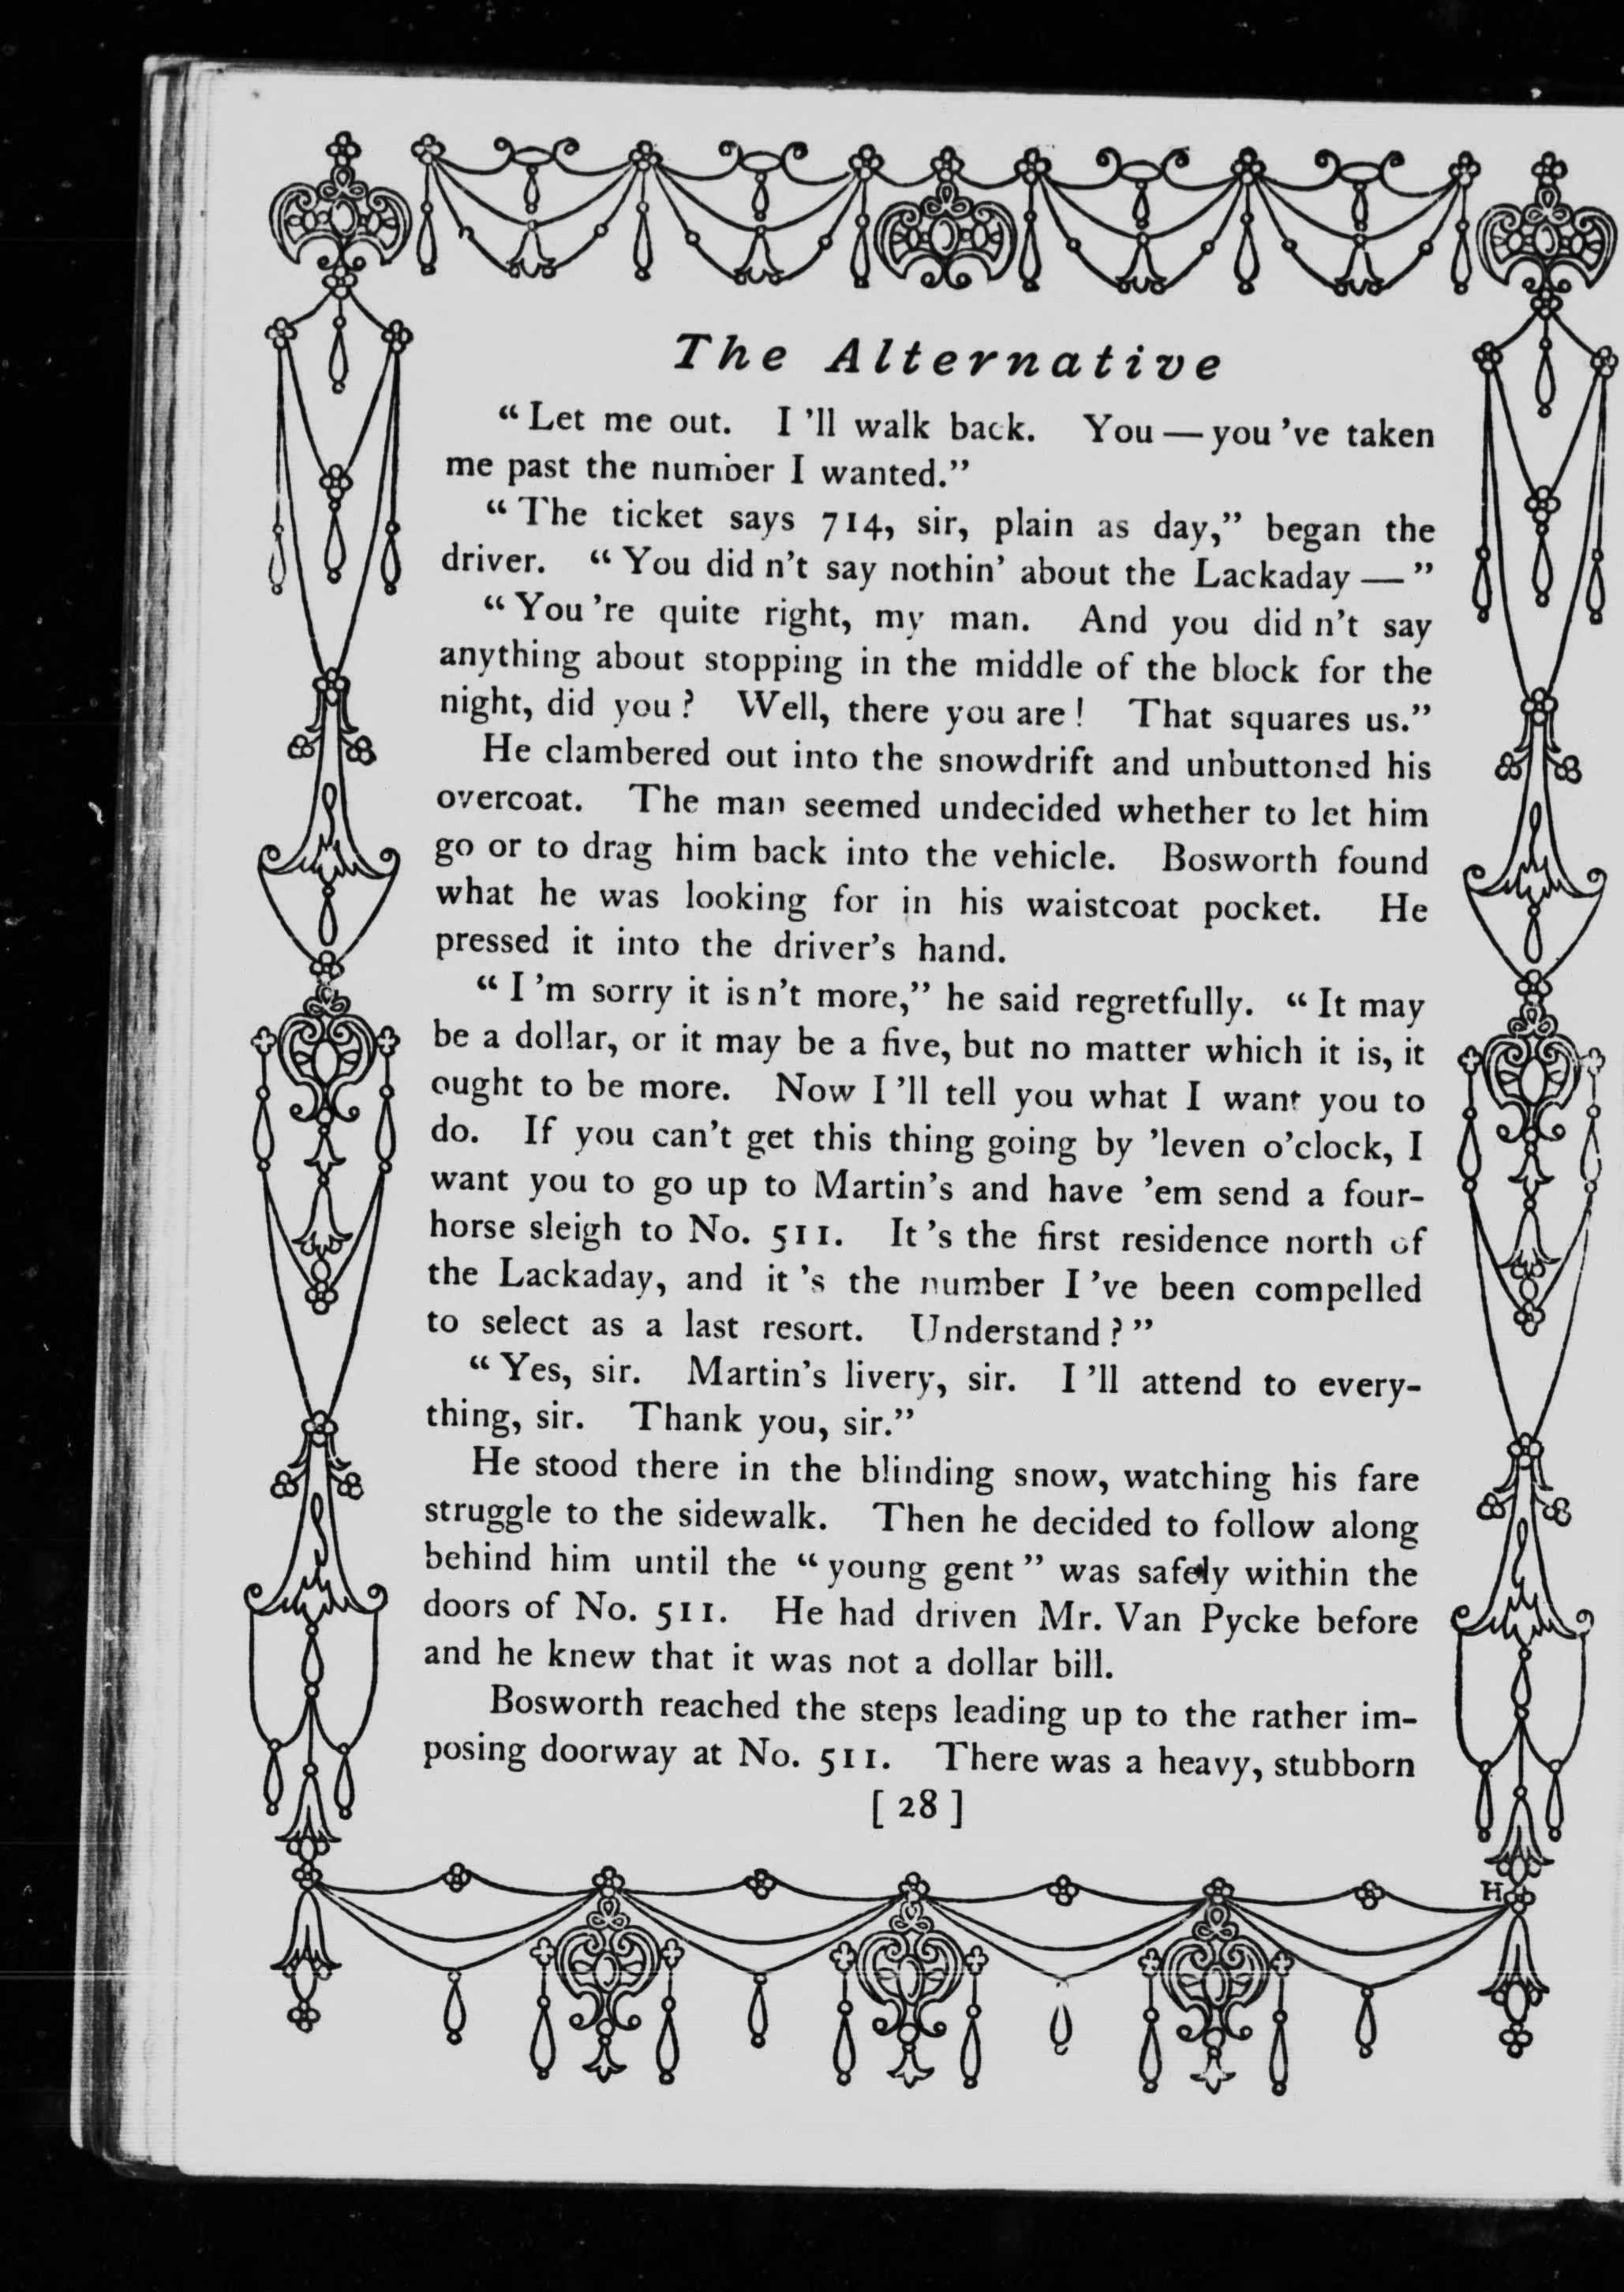 The Alternative
“Let me out. I’ll walk back. You—you’ve taken
me past the number I wanted.”
“The ticket says 714, sir, plain as day,” began the
driver. “You didn’t say nothin’ about the Lackaday—”
“You’re quite right, my man. And you didn’t say
anything about stopping in the middle of the block for the
night, did you? Well, there you are! That squares us.”
He clambered out into the snowdrift and unbuttoned his
overcoat. The man seemed undecided whether to let him
go or to drag him back into the vehicle. Bosworth found
what he was looking for in his waistcoat pocket. He
pressed it into the driver’s hand.
“I’m sorry it isn’t more,” he said regretfully. “It may
be a dollar, or it may be a five, but no matter which it is, it
ought to be more. Now I’ll tell you what I want you to
do. If you can’t get this thing going by ’leven o’clock, I
want you to go up to Martin’s and have ’em send a four-
horse sleigh to No. 511. It’s the first residence north of
the Lackaday, and it’s the number I’ve been compelled
to select as a last resort. Understand?”
“Yes, sir. Martin’s livery, sir. I’ll attend to every-
thing, sir. Thank you, sir.”
He stood there in the blinding snow, watching his fare
struggle to the sidewalk. Then he decided to follow along
behind him until the “young gent” was safely within the
doors of No. 511. He had driven Mr. Van Pycke before
and he knew that it was not a dollar bill.
Bosworth reached the steps leading up to the rather im-
posing doorway at No. 511. There was a heavy, stubborn
[28]
H